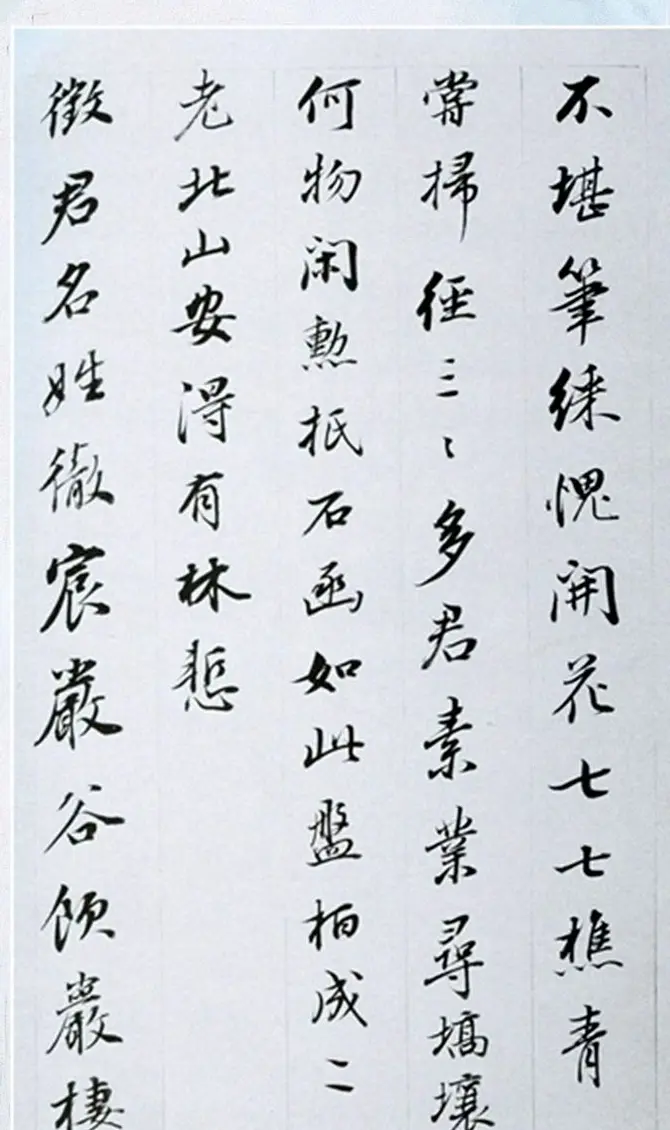 不堪筆練愧開花七七樵青
嘗掃徑三〻多君素業尋塙壤
何物閑勲抵石函如此盤柏成二
老北山安淂有林慙
徵君名姓徹宸嚴谷飲巖棲